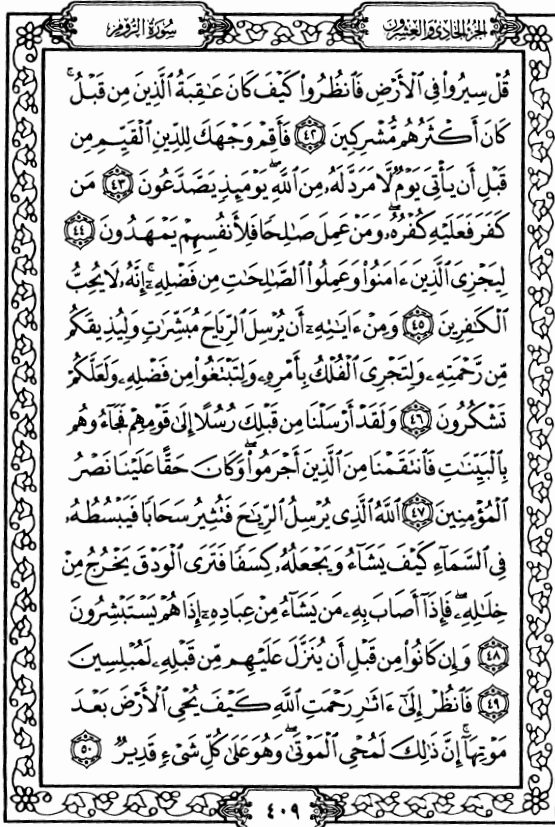 الجزء الحادي والعشرون
سورة الروم
قُلْ سِيرُوا۟ فِى ٱلْأَرْضِ فَٱنظُرُوا۟ كَيْفَ كَانَ عَـٰقِبَةُ ٱلَّذِينَ مِن قَبْلُ ۚ
كَانَ أَكْثَرُهُم مُّشْرِكِينَ ٤٢ فَأَقِمْ وَجْهَكَ لِلدِّينِ ٱلْقَيِّمِ مِن
قَبْلِ أَن يَأْتِىَ يَوْمٌ لَّا مَرَدَّ لَهُۥ مِنَ ٱللَّهِ ۖ يَوْمَئِذٍ يَصَّدَّعُونَ ٤٣ مَن
كَفَرَ فَعَلَيْهِ كُفْرُهُۥ ۖ وَمَنْ عَمِلَ صَـٰلِحًا فَلِأَنفُسِهِمْ يَمْهَدُونَ ٤٤
لِيَجْزِىَ ٱلَّذِينَ ءَامَنُوا۟ وَعَمِلُوا۟ ٱلصَّـٰلِحَـٰتِ مِن فَضْلِهِۦٓ ۚ إِنَّهُۥ لَا يُحِبُّ
ٱلْكَـٰفِرِينَ ٤٥ وَمِنْ ءَايَـٰتِهِۦٓ أَن يُرْسِلَ ٱلرِّيَاحَ مُبَشِّرَٰتٍ وَلِيُذِيقَكُم
مِّن رَّحْمَتِهِۦ وَلِتَجْرِىَ ٱلْفُلْكُ بِأَمْرِهِۦ وَلِتَبْتَغُوا۟ مِن فَضْلِهِۦ وَلَعَلَّكُمْ
تَشْكُرُونَ ٤٦ وَلَقَدْ أَرْسَلْنَا مِن قَبْلِكَ رُسُلًا إِلَىٰ قَوْمِهِمْ فَجَآءُوهُم
بِٱلْبَيِّنَـٰتِ فَٱنتَقَمْنَا مِنَ ٱلَّذِينَ أَجْرَمُوا۟ ۖ وَكَانَ حَقًّا عَلَيْنَا نَصْرُ
ٱلْمُؤْمِنِينَ ٤٧ ٱللَّهُ ٱلَّذِى يُرْسِلُ ٱلرِّيَـٰحَ فَتُثِيرُ سَحَابًا فَيَبْسُطُهُۥ
فِى ٱلسَّمَآءِ كَيْفَ يَشَآءُ وَيَجْعَلُهُۥ كِسَفًا فَتَرَى ٱلْوَدْقَ يَخْرُجُ مِنْ
خِلَـٰلِهِۦ ۖ فَإِذَآ أَصَابَ بِهِۦ مَن يَشَآءُ مِنْ عِبَادِهِۦٓ إِذَا هُمْ يَسْتَبْشِرُونَ
٤٨ وَإِن كَانُوا۟ مِن قَبْلِ أَن يُنَزَّلَ عَلَيْهِم مِّن قَبْلِهِۦ لَمُبْلِسِينَ
٤٩ فَٱنظُرْ إِلَىٰٓ ءَاثَـٰرِ رَحْمَتِ ٱللَّهِ كَيْفَ يُحْىِ ٱلْأَرْضَ بَعْدَ
مَوْتِهَآ ۚ إِنَّ ذَٰلِكَ لَمُحْىِ ٱلْمَوْتَىٰ ۖ وَهُوَ عَلَىٰ كُلِّ شَىْءٍ قَدِيرٌ ٥٠
٤٠٩